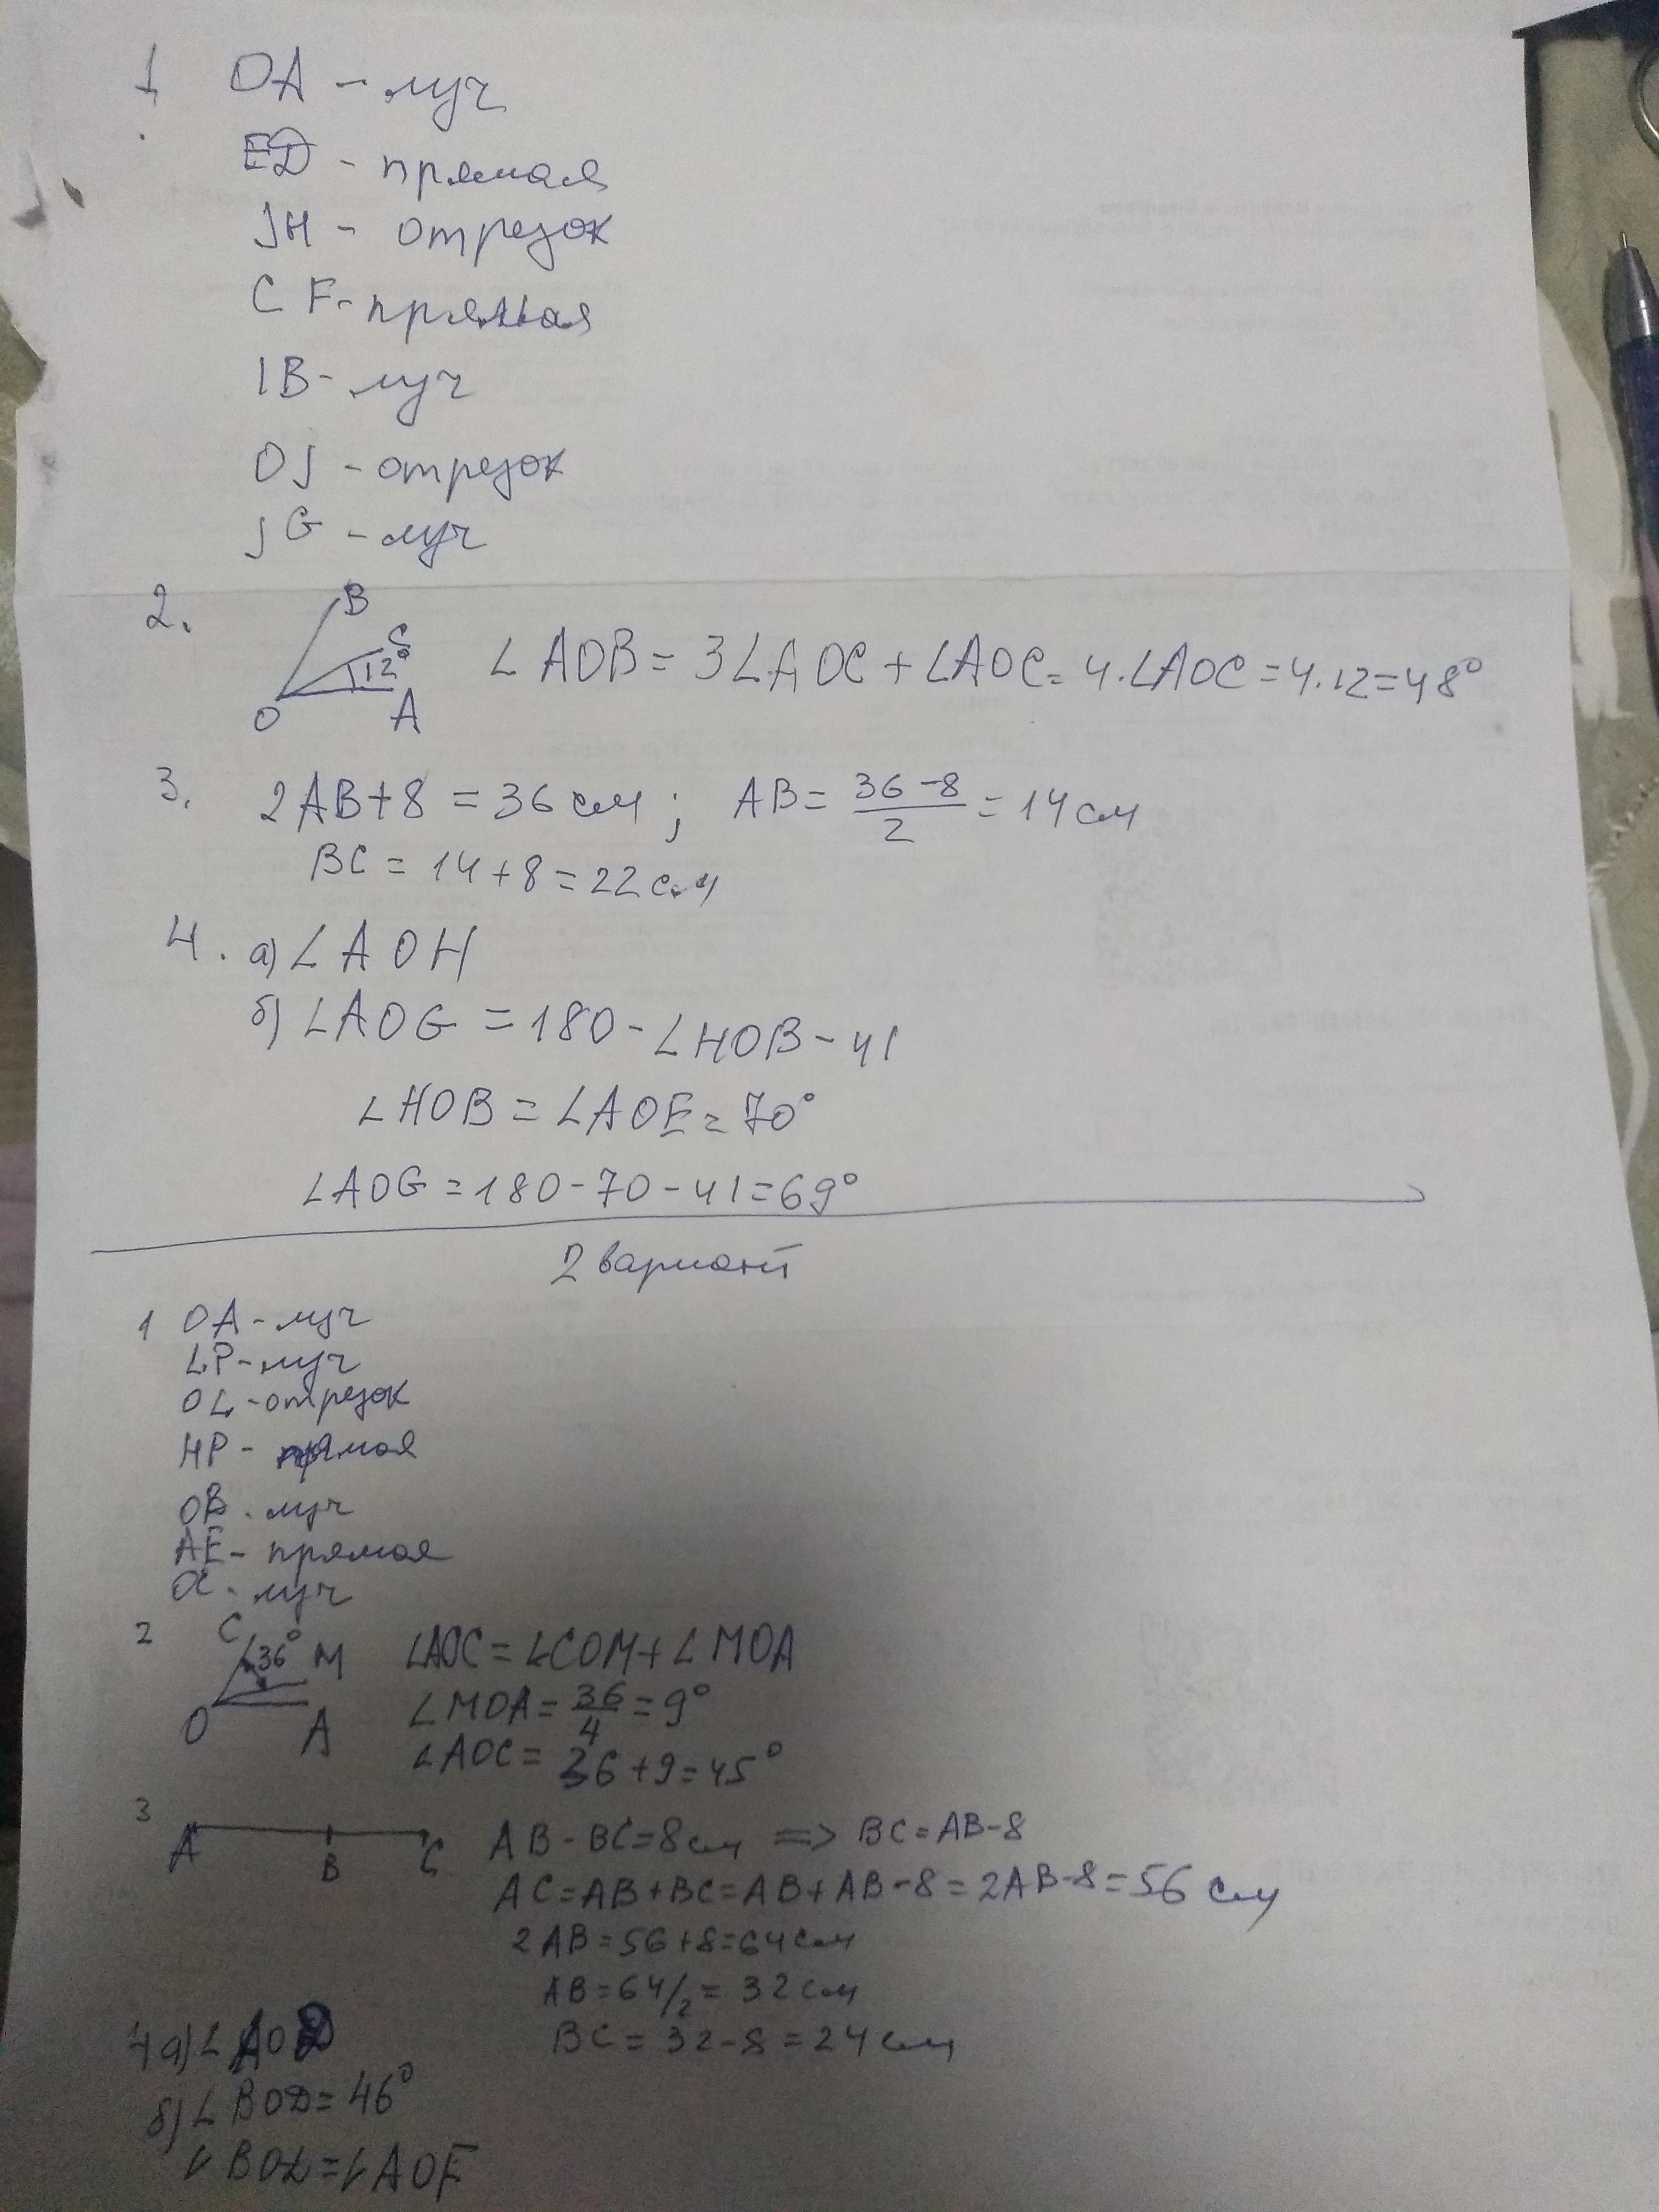 1 OA - луч
ED - прямая
JH - отрезок
CF - прямая
IB - луч
OJ - отрезок
JG - луч
2.
B
C
12°
O
A
∠AOB = 3∠AOC + ∠AOC = 4·∠AOC = 4·12 = 48°
3. 2AB+8 = 36 см ; AB = (36-8)/2 = 14 см
BC = 14+8 = 22 см
4. а) ∠AOH
б) ∠AOG = 180 - ∠HOB - 41
∠HOB = ∠AOE = 70°
∠AOG = 180-70-41 = 69°
2 вариант
1 OA - луч
LP - луч
OL - отрезок
HP - прямая
OB - луч
AE - прямая
OC - луч
2
C
36°
M
O
A
∠AOC = ∠COM + ∠MOA
∠MOA = 36/4 = 9°
∠AOC = 36+9 = 45°
3
A
B
C
AB - BC = 8 см => BC = AB-8
AC = AB+BC = AB+AB-8 = 2AB-8 = 56 см
2AB = 56+8 = 64 см
AB = 64/2 = 32 см
BC = 32-8 = 24 см
4 а) ∠AOD
б) ∠BOD = 46°
∠BOL = ∠AOF